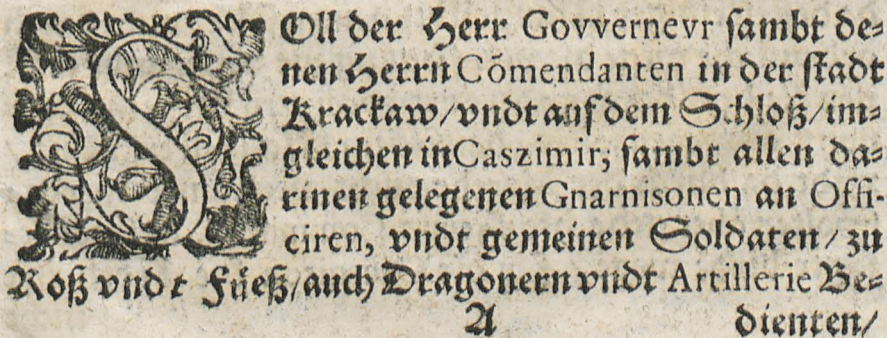 SOll der Herr Govvernevr sambt de⸗
nen Herrn Cõmendanten in der stadt
Krackaw/vndt auf dem Schloß/im⸗
gleichen in Caszimir, sambt allen da⸗
rinen gelegenen Gnarnisonen an Offi-
ciren, vndt gemeinen Soldaten/zu
Roß vndt Füeß/auch Dragonern vndt Artillerie Be⸗
A dienten/